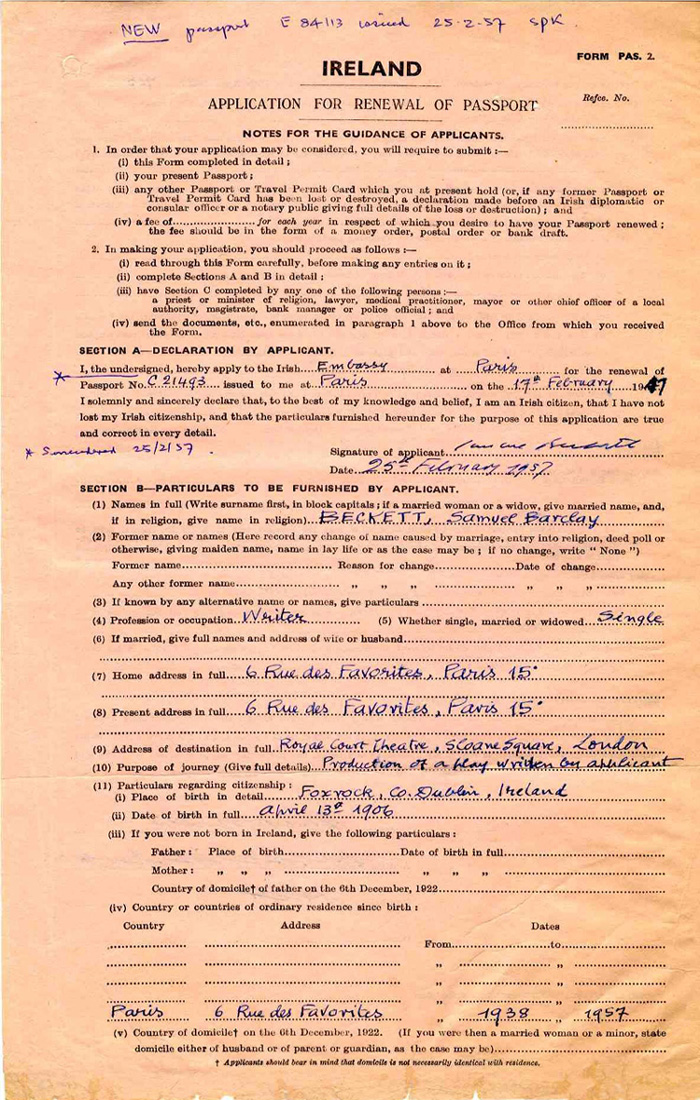 NEW passport E 84113 issued 25-2-57 SPK.
FORM PAS. 2.
IRELAND
Refce. No. ....................
APPLICATION FOR RENEWAL OF PASSPORT
NOTES FOR THE GUIDANCE OF APPLICANTS.
1. In order that your application may be considered, you will require to submit :—
(i) this Form completed in detail ;
(ii) your present Passport ;
(iii) any other Passport or Travel Permit Card which you at present hold (or, if any former Passport or
Travel Permit Card has been lost or destroyed, a declaration made before an Irish diplomatic or
consular officer or a notary public giving full details of the loss or destruction) ; and
(iv) a fee of....................for each year in respect of which you desire to have your Passport renewed ;
the fee should be in the form of a money order, postal order or bank draft.
2. In making your application, you should proceed as follows :—
(i) read through this Form carefully, before making any entries on it ;
(ii) complete Sections A and B in detail ;
(iii) have Section C completed by any one of the following persons :—
a priest or minister of religion, lawyer, medical practitioner, mayor or other chief officer of a local
authority, magistrate, bank manager or police official ; and
(iv) send the documents, etc., enumerated in paragraph 1 above to the Office from which you received
the Form.
SECTION A—DECLARATION BY APPLICANT.
I, the undersigned, hereby apply to the Irish Embassy at Paris for the renewal of
* Passport No. C 21493 issued to me at Paris on the 17th February 1947
I solemnly and sincerely declare that, to the best of my knowledge and belief, I am an Irish citizen, that I have not
lost my Irish citizenship, and that the particulars furnished hereunder for the purpose of this application are true
and correct in every detail.
* Surrendered 25/2/57.
Signature of applicant Samuel Beckett
Date 25th February 1957
SECTION B—PARTICULARS TO BE FURNISHED BY APPLICANT.
(1) Names in full (Write surname first, in block capitals ; if a married woman or a widow, give married name, and,
if in religion, give name in religion) BECKETT, Samuel Barclay
(2) Former name or names (Here record any change of name caused by marriage, entry into religion, deed poll or
otherwise, giving maiden name, name in lay life or as the case may be ; if no change, write “ None ”)
Former name.................... Reason for change....................Date of change....................
Any other former name.................... „ „ „ .................... „ „ „ ....................
(3) If known by any alternative name or names, give particulars ....................
(4) Profession or occupation Writer (5) Whether single, married or widowed Single
(6) If married, give full names and address of wife or husband....................
(7) Home address in full 6 Rue des Favorites, Paris 15°
(8) Present address in full 6 Rue des Favorites, Paris 15°
(9) Address of destination in full Royal Court Theatre, Sloane Square, London
(10) Purpose of journey (Give full details) Production of a play written by applicant
(11) Particulars regarding citizenship :
(i) Place of birth in detail Foxrock, Co. Dublin, Ireland
(ii) Date of birth in full April 13th 1906
(iii) If you were not born in Ireland, give the following particulars :
Father : Place of birth....................Date of birth in full....................
Mother : „ „ „ .................... „ „ „ ....................
Country of domicile† of father on the 6th December, 1922....................
(iv) Country or countries of ordinary residence since birth :
Country Address Dates
From....................to....................
„ „
„ „
Paris 6 Rue des Favorites „ 1938 „ 1957
(v) Country of domicile† on the 6th December, 1922. (If you were then a married woman or a minor, state
domicile either of husband or of parent or guardian, as the case may be)....................
† Applicants should bear in mind that domicile is not necessarily identical with residence.